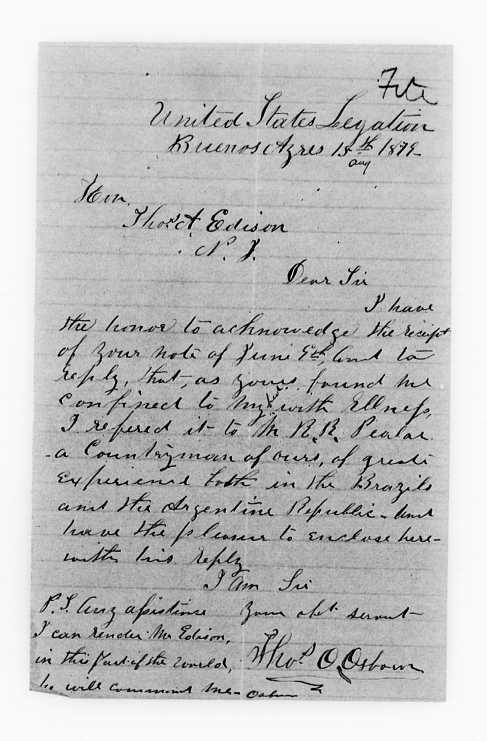 File
United States Legation
Buenos Ayres 18th 1879
Aug
Hon.
Thos A Edison
N. J.
Dear Sir
I have
the honor to acknowedge the receipt
of your note of June 9th, and to
reply, that, as yours found me
confined to my with Illness,
I refered it to Mr R. R. Pealar
a Countryman of ours, of great
experience both in the Brazils
and the Argentine Republic - and
have the pleasure to enclose here-
with his reply
I Am Sir
Your obt servant
Thos O. Osborn
P.S. Any assistance
I can render Mr Edison,
in this part of the world,
he will command me - Osborn